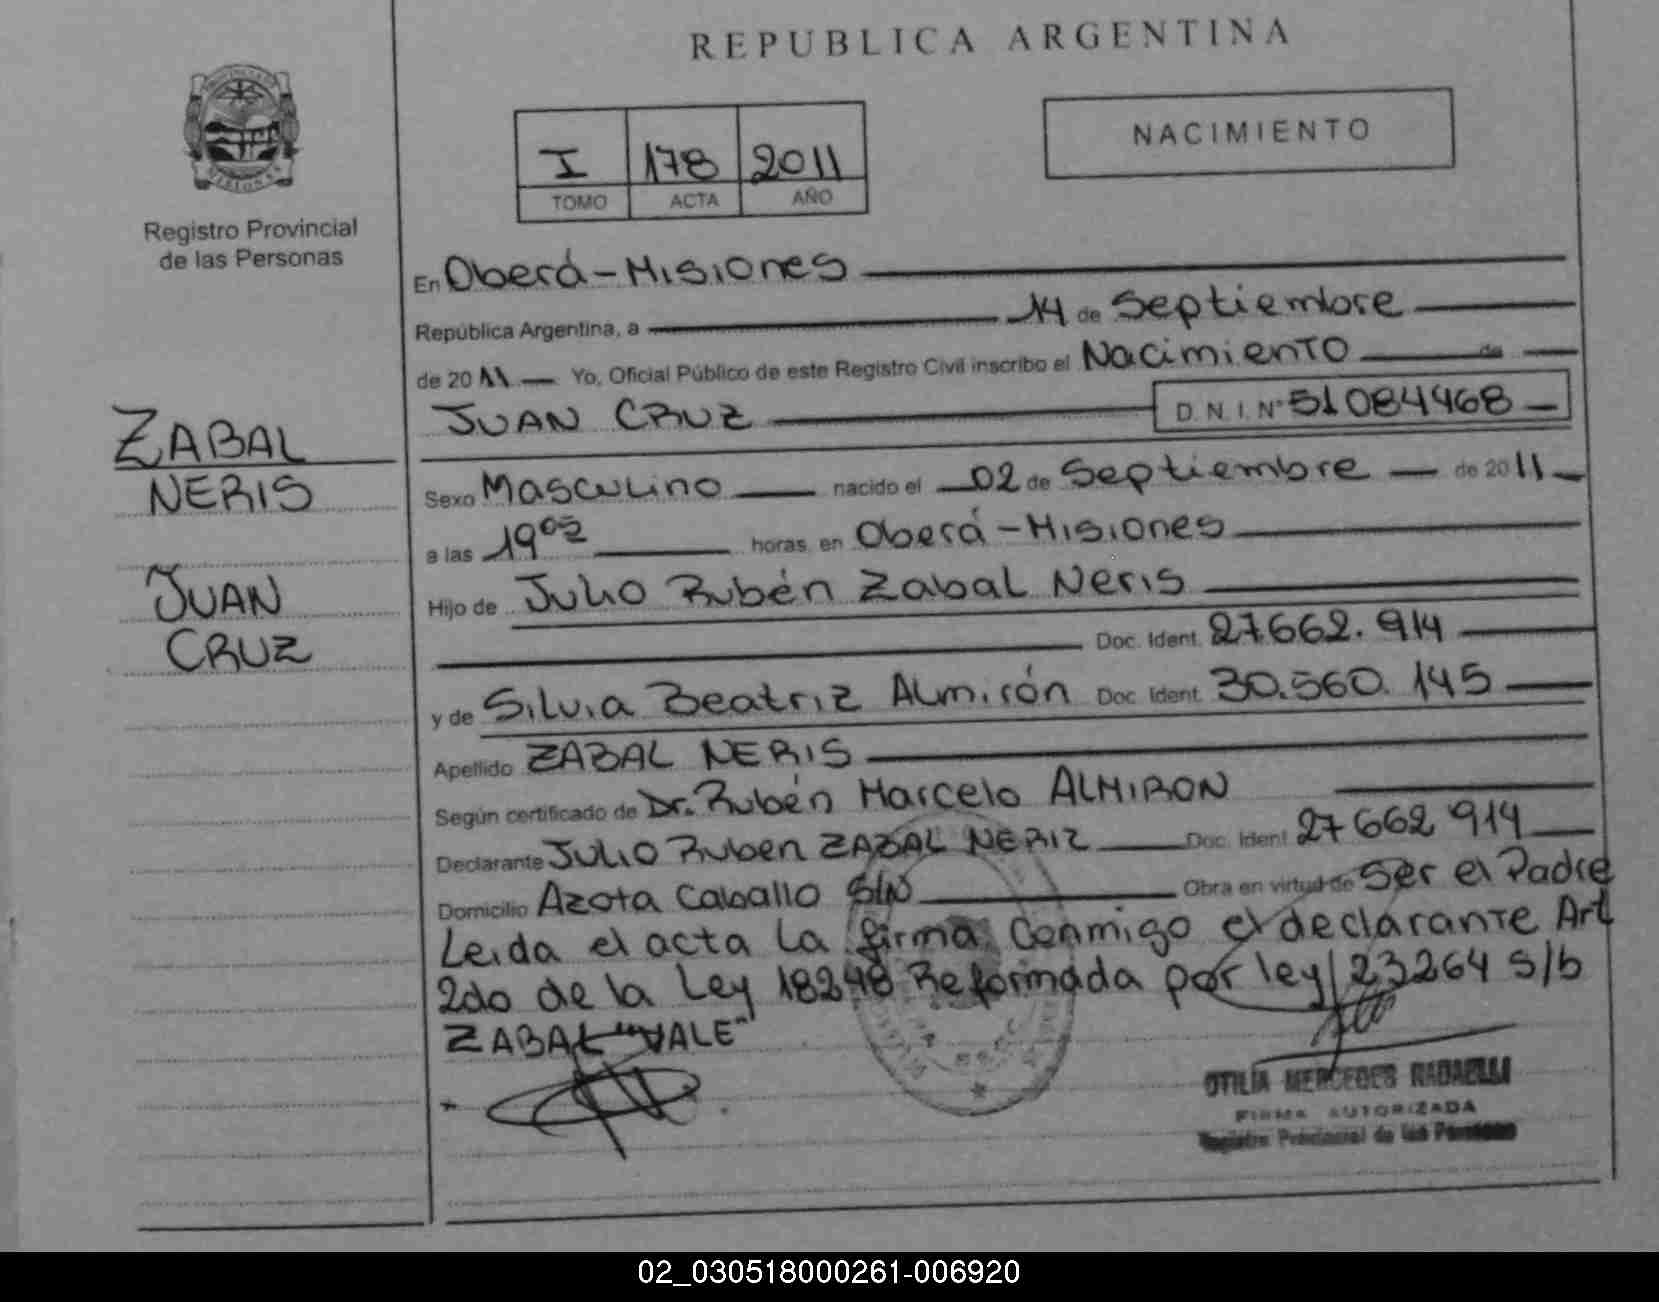 REPUBLICA ARGENTINA
I 178 2011
TOMO ACTA AÑO
NACIMIENTO
Registro Provincial
de las Personas
ZABAL
NERIS
JUAN
CRUZ
En Oberá-Misiones
República Argentina, a 14 de Septiembre
de 2011 Yo, Oficial Público de este Registro Civil inscribo el Nacimiento de
JUAN CRUZ D.N.I. N° 51084468
Sexo Masculino nacido el 02 de Septiembre de 2011
a las 19 02 horas, en Oberá-Misiones
Hijo de Julio Rubén Zabal Neris
Doc. Ident. 27.662.914
y de Silvia Beatriz Almirón Doc. Ident. 30.560.145
Apellido ZABAL NERIS
Según certificado de Dr. Rubén Marcelo ALMIRON
Declarante Julio Ruben ZABAL NERIZ Doc. Ident. 27662914
Domicilio Azota Caballo S/N Obra en virtud de Ser el Padre
Leida el acta la firma Conmigo el declarante Art
2do de la Ley 18248 Reformada por ley 23264 s/b
ZABAL "VALE"
OTILIA MERCEDES RADAELLI
FIRMA AUTORIZADA
Registro Provincial de las Personas
02_030518000261-006920